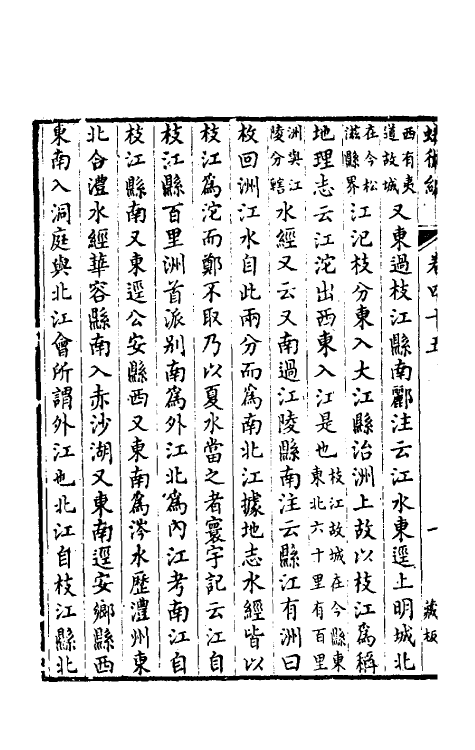 蛾術編 卷四十五 一 藏板
西有夷道故城又東過枝江縣南酈注云江水東逕上明城北
在今松滋縣界江汜枝分東入大江縣治洲上故以枝江爲稱
地理志云江沱出西東入江是也枝江故城在今縣東北六十里有百里
洲與江陵分轄水經又云又南過江陵縣南注云縣江有洲曰
枚回洲江水自此兩分而爲南北江據地志水經皆以
枝江爲沱而鄭不取乃以夏水當之者寰宇記云江自
枝江縣百里洲首派别南爲外江北爲內江考南江自
枝江縣南又東逕公安縣西又東南爲涔水歷澧州東
北合澧水經華容縣南入赤沙湖又東南逕安鄉縣西
東南入洞庭與北江會所謂外江也北江自枝江縣北